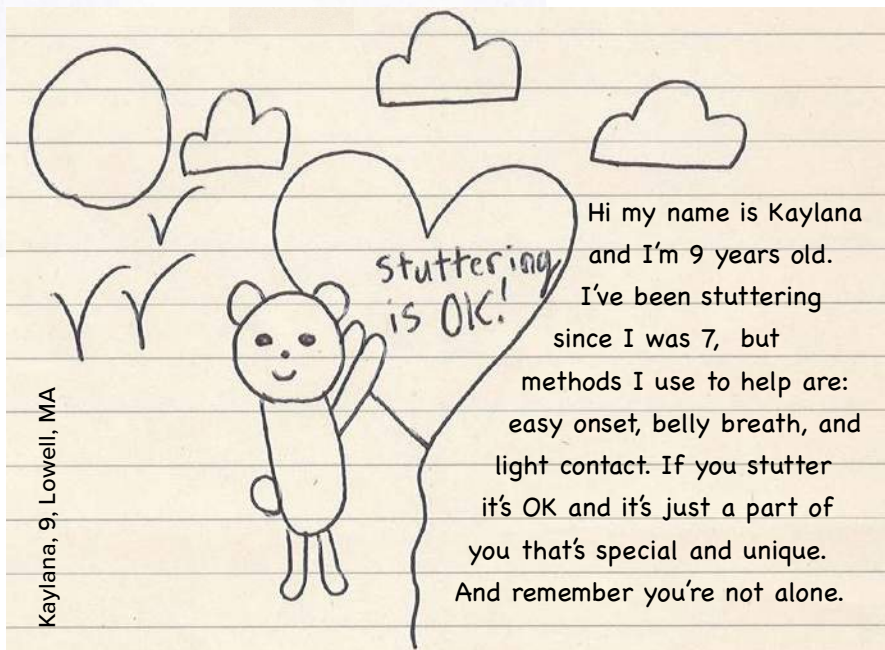 stuttering
is OK!
Hi my name is Kaylana
and I'm 9 years old.
I've been stuttering
since I was 7, but
methods I use to help are:
easy onset, belly breath, and
light contact. If you stutter
it's OK and it's just a part of
you that's special and unique.
And remember you're not alone.
Kaylana, 9, Lowell, MA